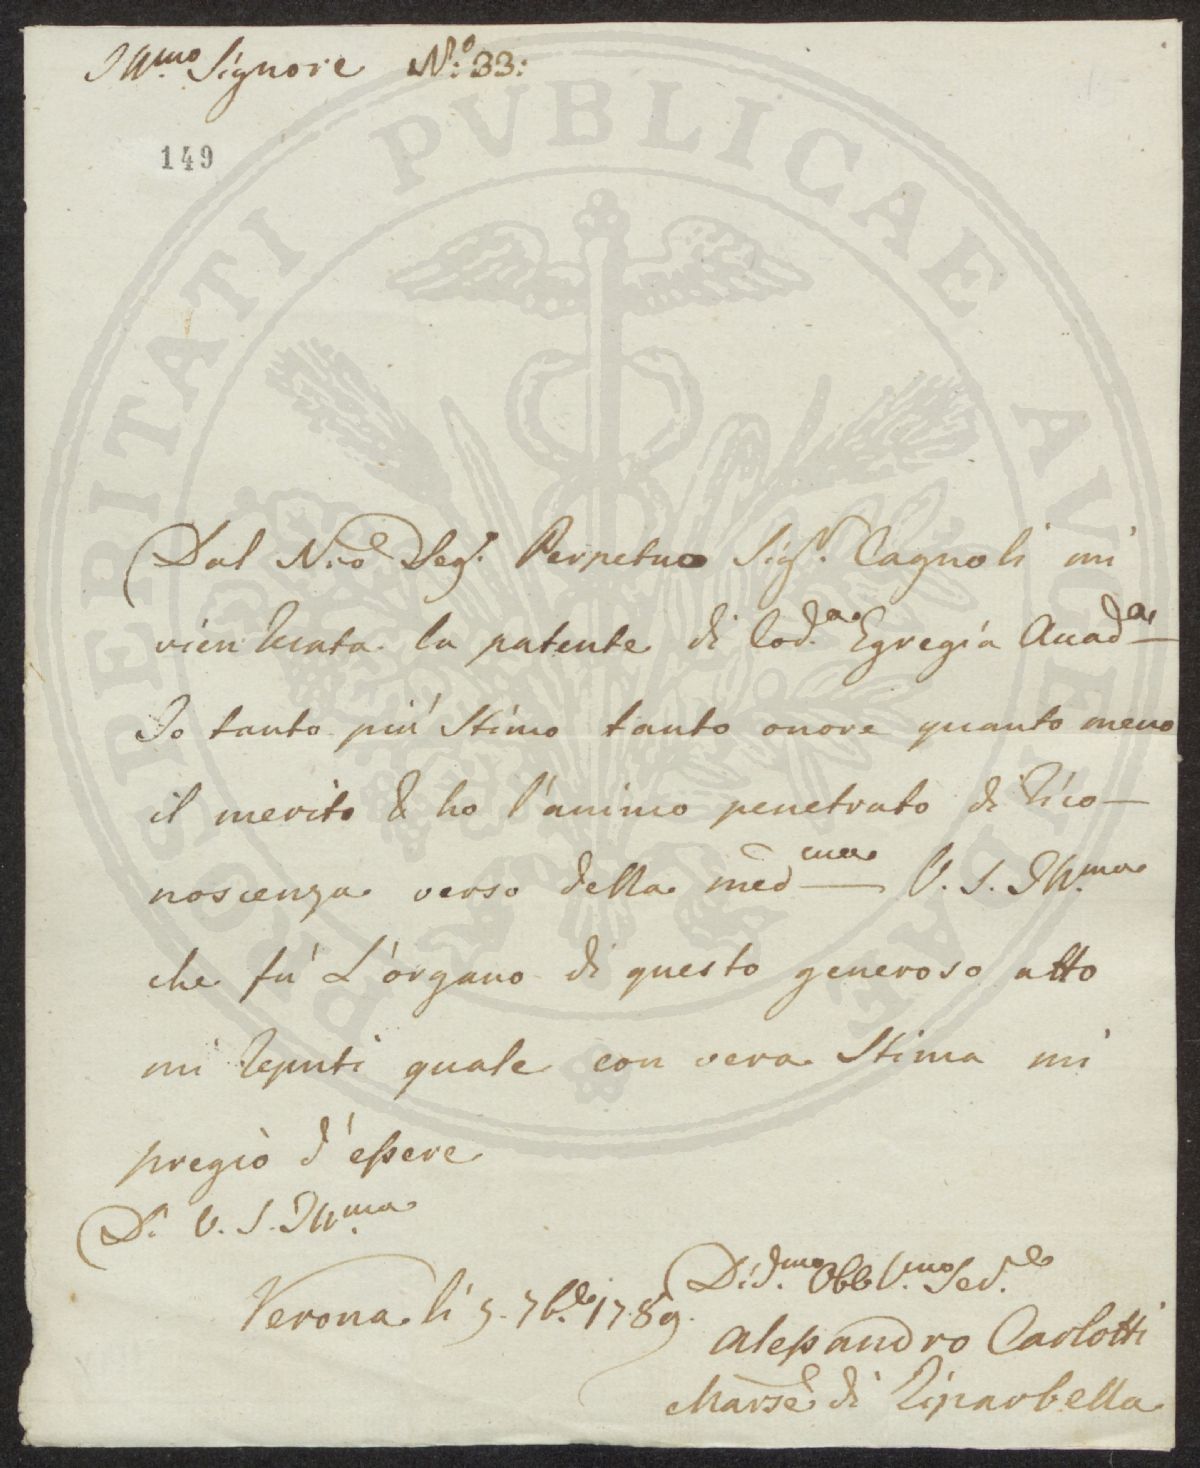 Ill.mo Signore N.o: 33:
149
Dal N.ro Seg.o Perpetuo Sig.r Cagnoli mi
vien recata la patente di cod.a Egregia Accad.a
Io tanto più stimo tanto onore quanto meno
il merito & ho l'animo penetrato di rico-
noscenza verso della med.ma V. S. Ill.ma
che fù L'organo di questo generoso atto
mi reputi quale con vera stima mi
pregiò d'essere
Di V. S. Ill.ma
Verona li 5. 7b.e 1789.
Obbl.mo
Alessandro Carlotti
Marse di Riparbella
PROSPERITATI PVBLICAE AVGENDAE